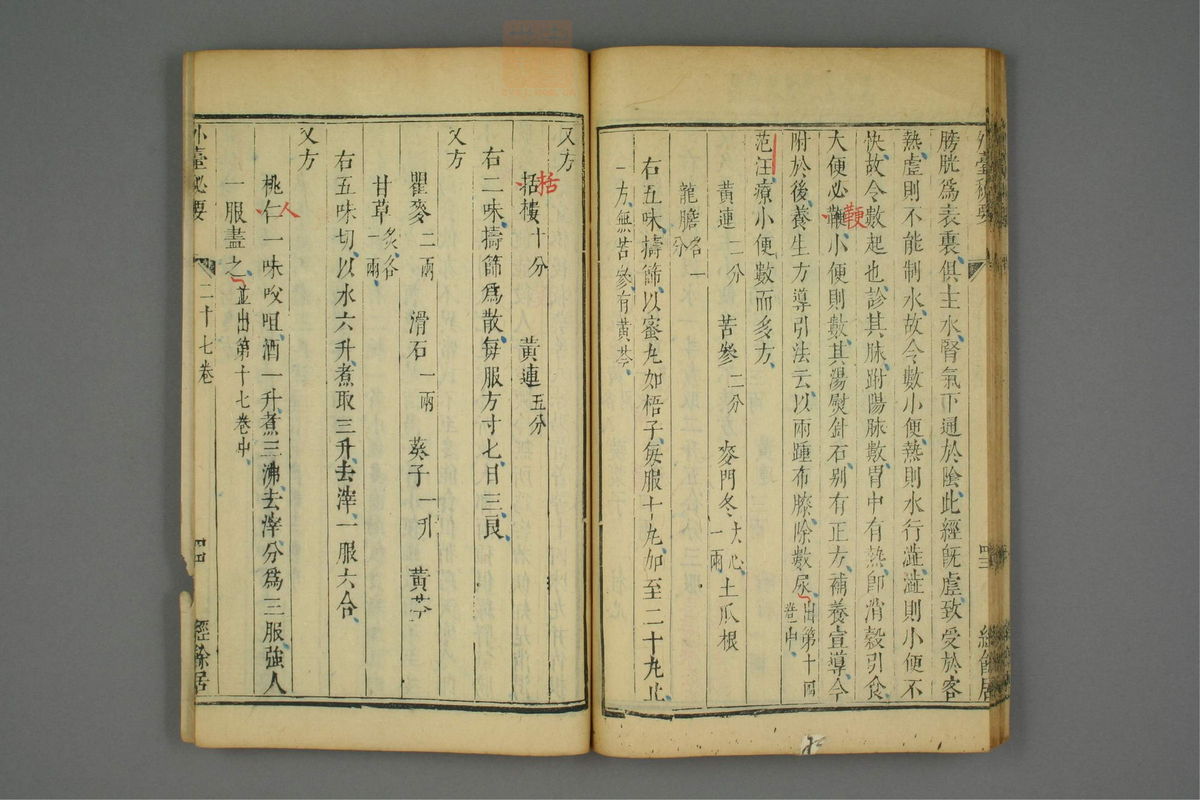 膀胱爲表裏俱主水腎氣下通於陰此經旣虛致受於客
熱虛則不能制水故令數小便熱則水行澁澁則小便不
快故令數起也診其脉趺陽脉數胃中有熱卽消穀引食
大便必鞕小便則數其湯熨針石別有正方補養宣導今
附於後養生方導引法云以兩踵布膝除數尿出第十四卷中
范汪療小便數而多方
黃連二分 苦參二分 麥門冬去心一兩 土瓜根
龍膽各一分
右五味擣篩以蜜丸如梧子每服十丸加至二十丸止
一方無苦參有黃芩
又方
栝樓十分 黃連五分
右二味擣篩爲散每服方寸匕日三良
又方
瞿麥二兩 滑石一兩 葵子一升 黃芩
甘草炙各一兩
右五味切以水六升煮取三升去滓一服六合
又方
桃仁一味㕮咀酒一升煮三沸去滓分爲三服強人
一服盡之並出第十七卷中
外臺祕要 二十七卷 四四 經餘居